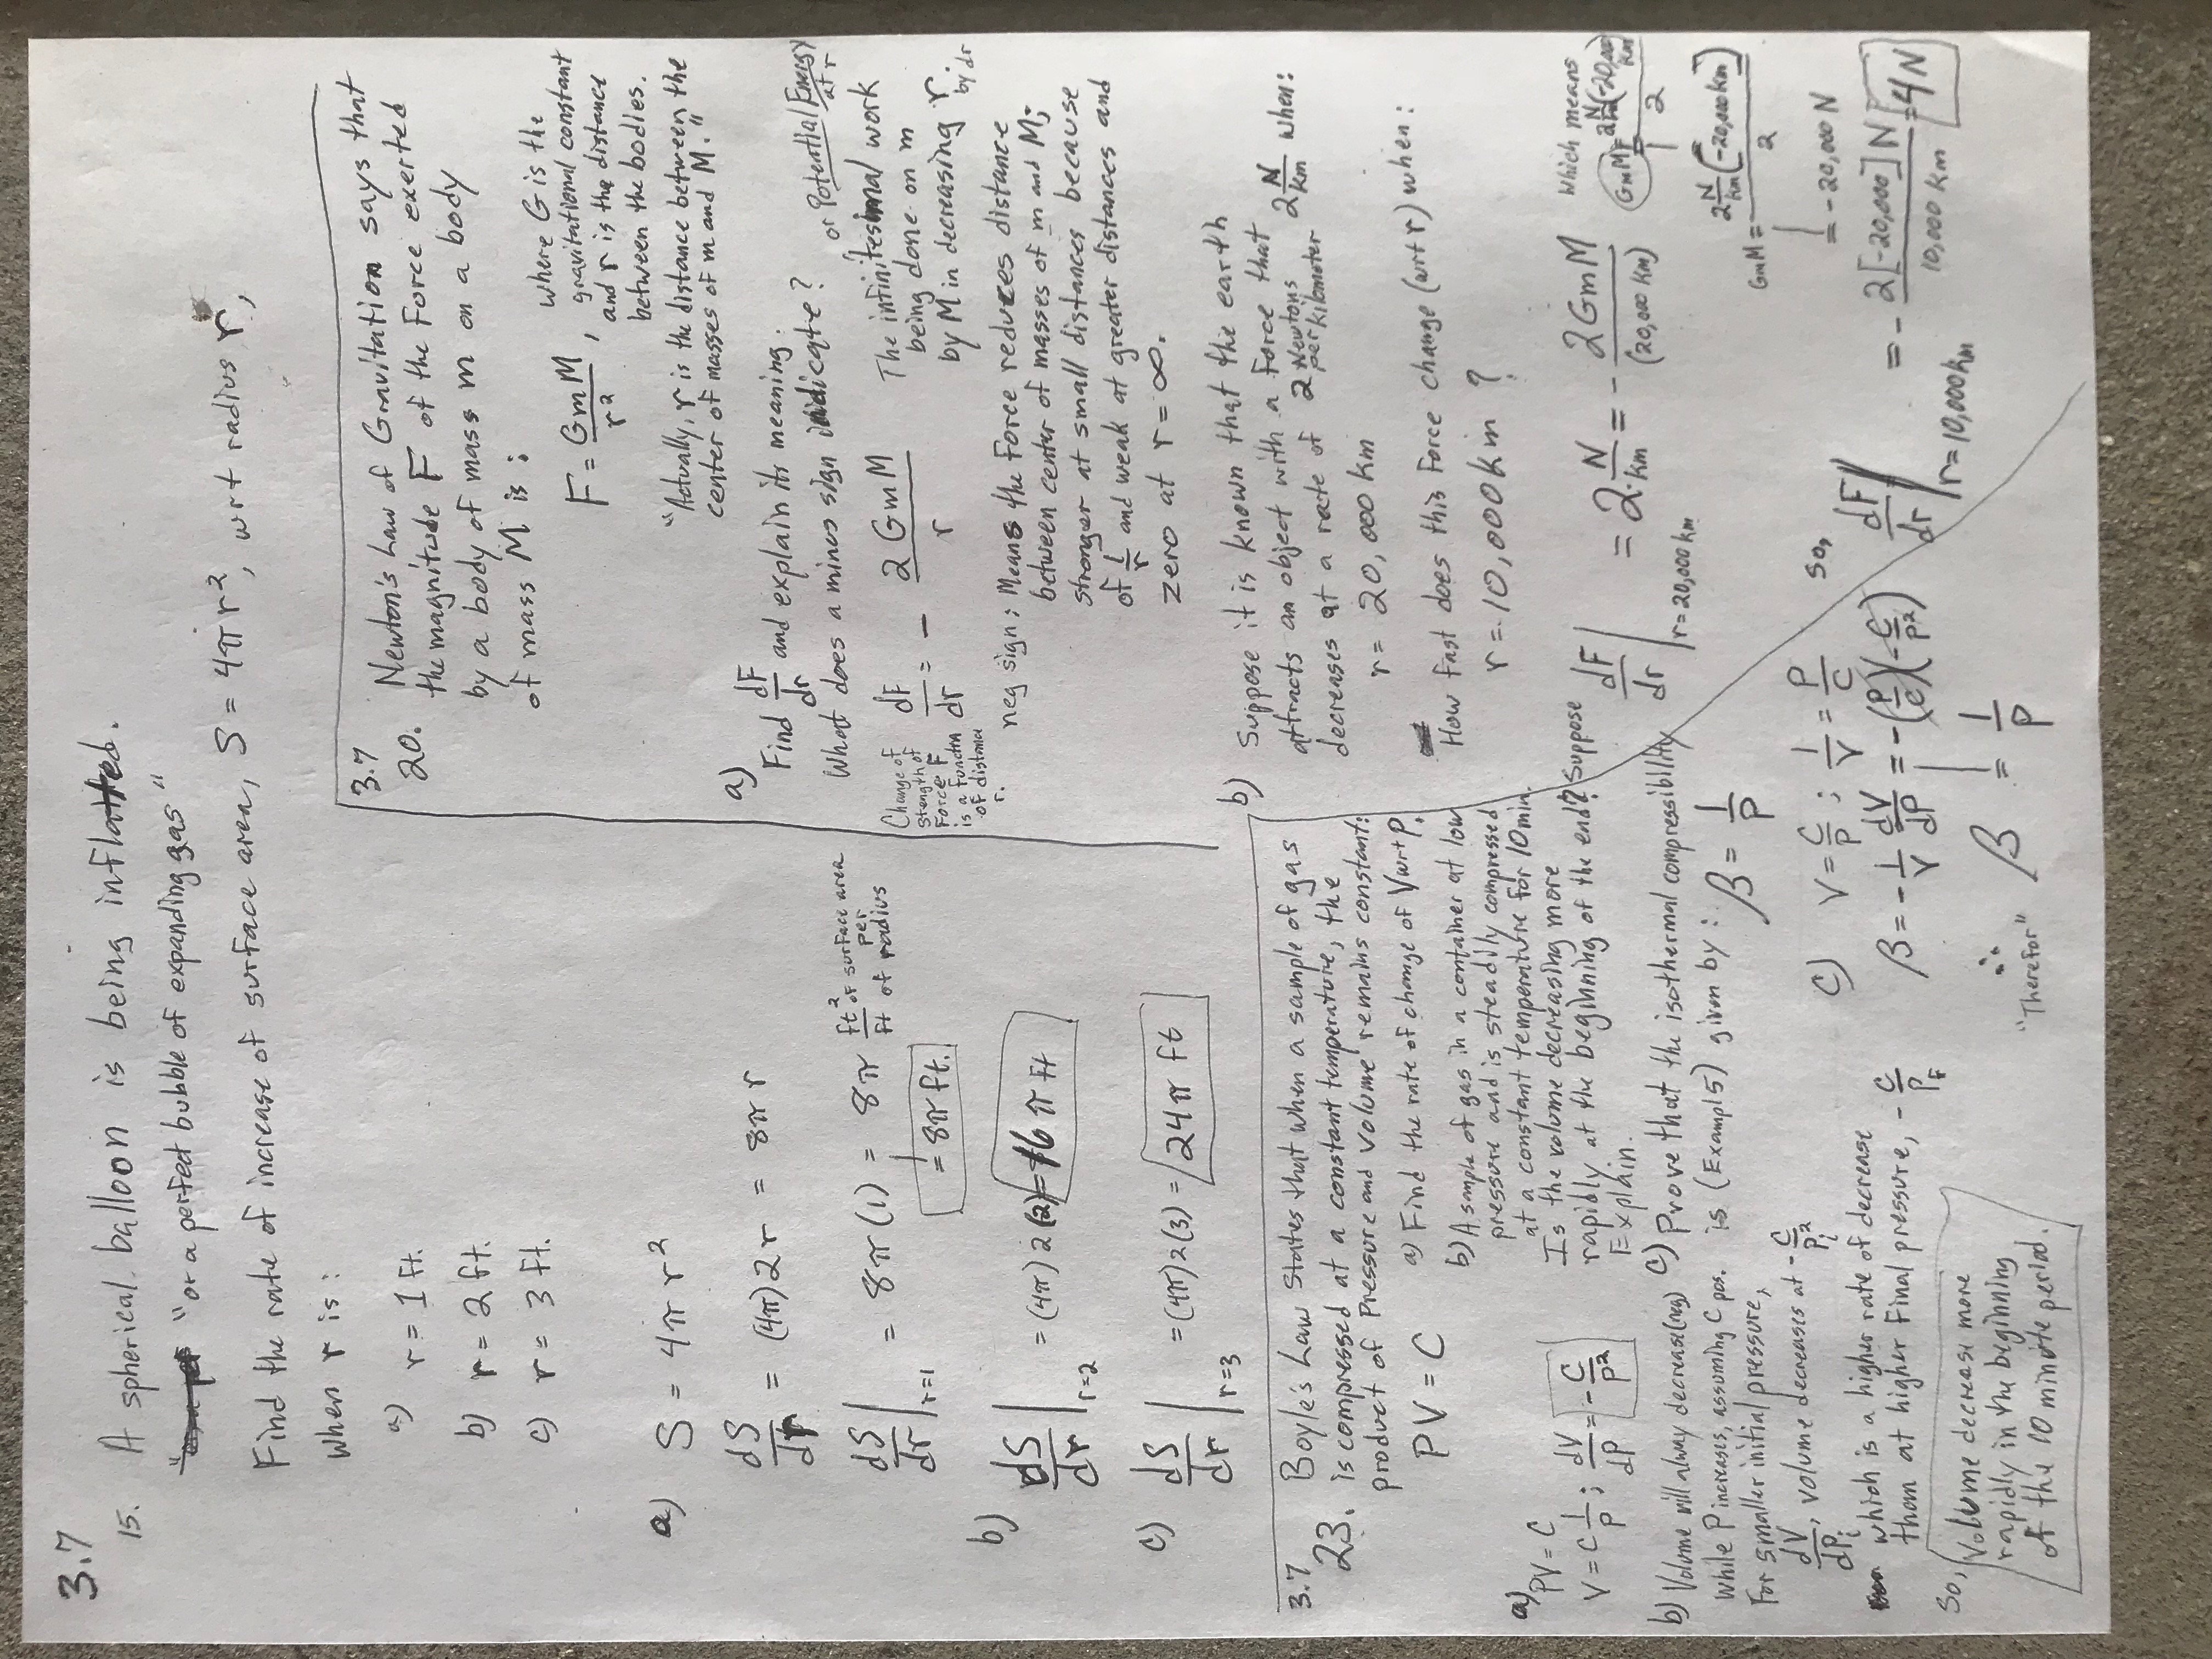 3.7
15. A spherical balloon is being inflatted.
"or a perfect bubble of expanding gas"
Find the rate of increase of surface area, S = 4π r², wrt radius r,
when r is:
a) r = 1 ft.
b) r = 2 ft.
c) r = 3 ft.
a) S = 4π r²
dS/dr = (4π)2r = 8π r
dS/dr |r=1 = 8π(1) = 8π ft²/ft of surface area per of radius
= 8π ft.
b) dS/dr |r=2 = (4π)2(2) = 16 π ft
c) dS/dr |r=3 = (4π)2(3) = 24π ft
3.7
20. Newton's Law of Gravitation says that
the magnitude F of the Force exerted
by a body of mass m on a body
of mass M is :
F = GmM/r² , where G is the
gravitational constant
and r is the distance
between the bodies.
"Actually, r is the distance between the
center of masses of m and M."
a)
Find dF/dr and explain its meaning.
What does a minus sign indicate?
Change of
Stength of
Force F
is a functn
of distance
r.
dF/dr = - 2 GmM/r
or Potential Energy
at r
The infinitesimal work
being done on m
by M in decreasing r.
by dr
neg sign: Means the Force reduces distance
between center of masses of m and M;
stronger at small distances because
of 1/r and weak at greater distances and
zero at r = ∞.
b) Suppose it is known that the earth
attracts an object with a Force that
decreases at a rate of 2 Newtons per kilometer 2 N/km when:
r = 20,000 km
How fast does this Force change (wrt r) when:
r = 10,000 km ?
Suppose
dF/dr |r=20,000 km = 2 N/km = - 2GmM/(20,000 km)
Which means
GmM = 2 N/km (-20,000 km)/2
GmM = 2 N/km (-20,000 km)/2
= -20,000 N
so,
dF/dr |r=10,000km = - 2[-20,000] N/10,000 km = 4N
3.7
23. Boyle's Law States that when a sample of gas
is compressed at a constant temperature, the
product of Pressure and Volume remains constant:
PV = C
a) Find the rate of change of V wrt P.
b) A sample of gas in a container at low
pressure and is steadily compressed
at a constant temperature for 10 min.
Is the volume decreasing more
rapidly at the beginning of the end?
Explain.
c) Prove that the isothermal compressibility
is (Exampl 5) given by : β = 1/P
a)
PV = C
V = C 1/P ; dV/dP = - C/P²
b) Volume will alway decrease (neg)
while P increases, assuming C pos.
For smaller initial pressure,
dV/dPi , volume decreases at - C/Pi²
which is a higher rate of decrease
than at higher Final pressure, - C/PF
So, Volume decrease more
rapidly in the beginning
of the 10 minute period.
c) V = C/P ; 1/V = P/C
β = - 1/V dV/dP = -(P/C)(-C/P²)
∴
"Therefor" β = 1/P